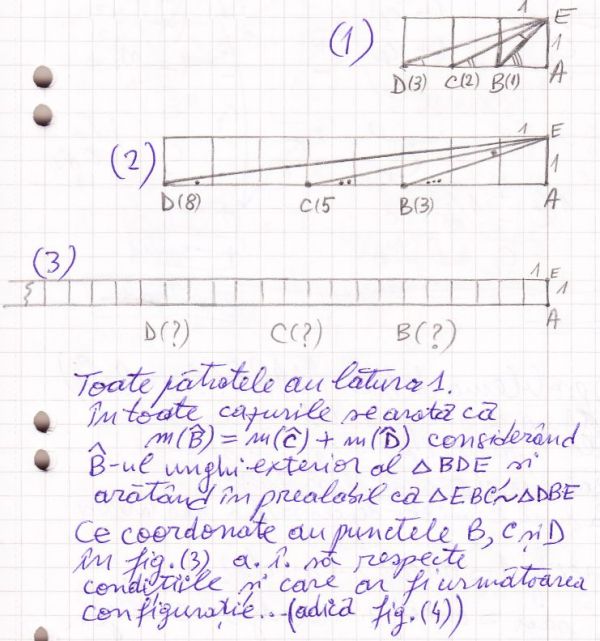 (1)
1 E
1
D(3) C(2) B(1) A
(2)
1 E
1
D(8) C(5 B(3) A
(3)
1 E
1
D(?) C(?) B(?) A
Toate pătratele au latura 1.
În toate cazurile se arată că
m(B̂) = m(Ĉ) + m(D̂) considerând
B̂-ul unghi exterior al △BDE și
arătând în prealabil că △EBC~△DBE
Ce coordonate au punctele B, C și D
în fig. (3) a. î. să respecte
condițiile și care ar fi următoarea
configurație...(adică fig. (4))